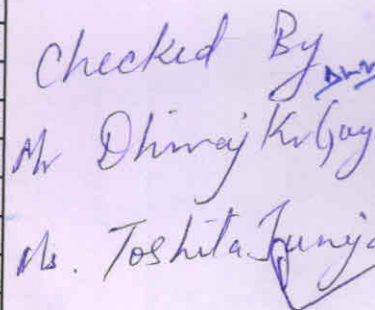 Checked By
Mr Dhiraj Kr Goy
Ms. Toshita Juneja